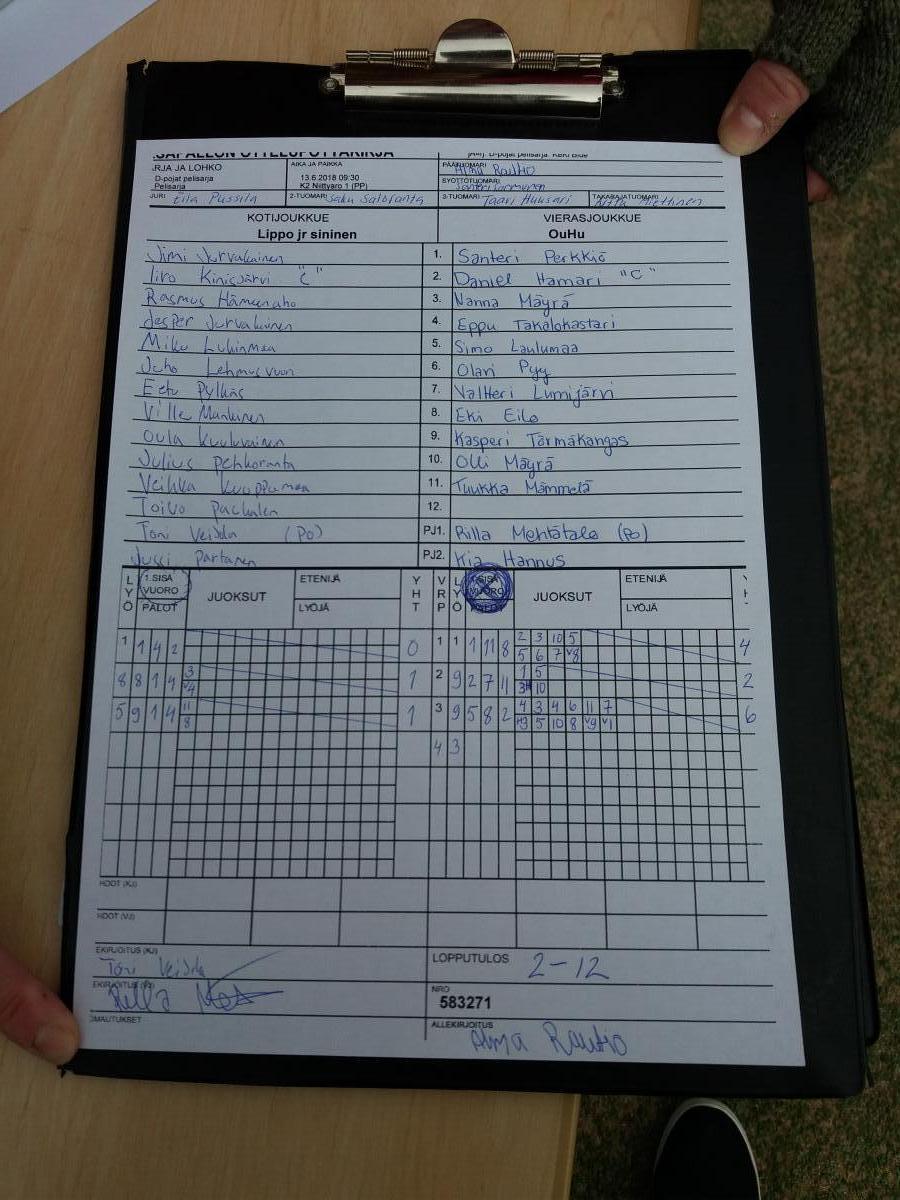 D-pojat pelisarja
RJA JA LOHKO
D-pojat pelisarja
Pelisarja
AIKA JA PAIKKA
13.6.2018 09:30
K2 Niittyaro 1 (PP)
Alma Rautio
SYÖTTÖTUOMARI
JURI Eila Pussila 2-TUOMARI Saku Saloranta 3-TUOMARI Taavi Huusari TAKARAJATUOMARI
KOTIJOUKKUE VIERASJOUKKUE
Lippo jr sininen OuHu
Jimi Jurvakainen 1. Santeri Perkkiö
Iiro Kinisjärvi "C" 2. Daniel Hamari "C"
Rasmus Hämeenaho 3. Nanna Mäyrä
Jesper Jurvakainen 4. Eppu Takalokastari
5. Simo Laulumaa
Juho Lehmusvuori 6. Olavi Pyy
Eetu Pylkäs 7. Valtteri Lumijärvi
Ville 8. Eki Eilo
Oula Kuuluvainen 9. Kasperi Törmäkangas
Julius Pehkoranta 10. Olli Mäyrä
Veikka 11. Tuukka Mämmelä
Toivo 12.
Toni (PO) PJ1. Rilla Mehtätalo (PO)
Jussi Partanen PJ2. Kia Hannus
LYÖ 1.SISÄ VUORO PALOT JUOKSUT ETENIJÄ LYÖJÄ YHT VRP LYÖ SISÄ VUORO PALOT JUOKSUT ETENIJÄ LYÖJÄ
1 1 4 2 0 1 1 1 11 8 2 3 10 5 4
5 6 7 V8
8 8 1 4 3 1 2 9 2 7 11 1 5 2
V4 10
5 9 1 4 11 1 3 9 5 8 2 4 3 4 6 11 7 6
8 5 10 8 V9 V1
4 3
HDOT (KJ)
HDOT (VJ)
EKIRJOITUS (KJ)
Toni
LOPPUTULOS 2-12
Rilla
NRO
583271
OMAUTUKSET
ALLEKIRJOITUS
Alma Rautio